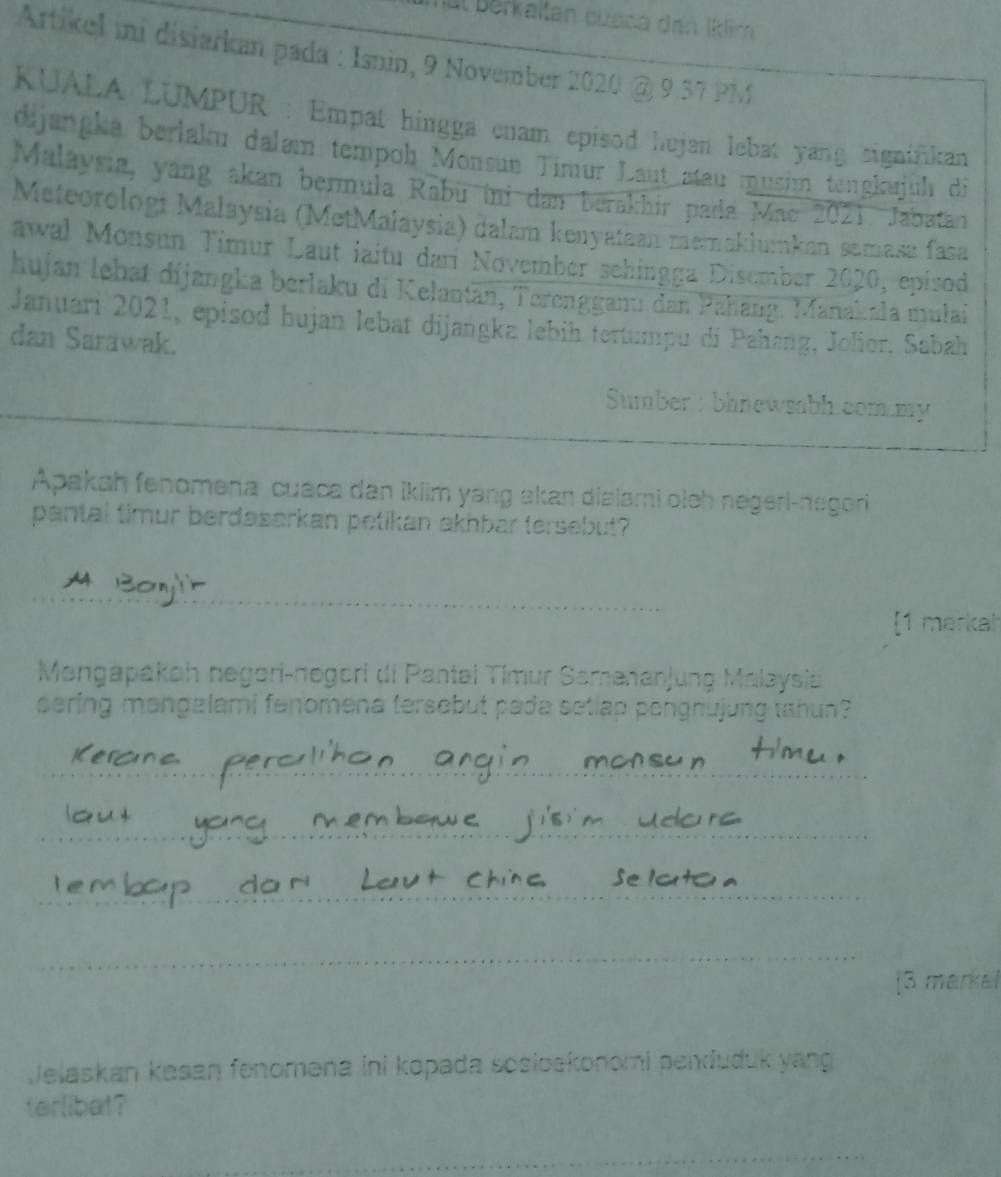 berkaitan cuaca dan iklim
Artikel ini disiarkan pada : Isnin, 9 November 2020 @ 9.37 PM
KUALA LUMPUR : Empat hingga enam episod hujan lebat yang signifikan
dijangka berlaku dalam tempoh Monsun Timur Laut atau musim tengkujuh di
Malaysia, yang akan bermula Rabu ini dan berakhir pada Mac 2021. Jabatan
Meteorologi Malaysia (MetMalaysia) dalam kenyataan memaklumkan semasa fasa
awal Monsun Timur Laut iaitu dari November sehingga Disember 2020, episod
hujan lebat dijangka berlaku di Kelantan, Terengganu dan Pahang. Manakala mulai
Januari 2021, episod hujan lebat dijangka lebih tertumpu di Pahang, Johor, Sabah
dan Sarawak.
Sumber : bhnewsabh.com.my
Apakah fenomena cuaca dan iklim yang akan dialami oleh negeri-negeri
pantai timur berdasarkan petikan akhbar tersebut?
Banjir
[1 markah
Mengapakah negeri-negeri di Pantai Timur Semenanjung Malaysia
sering mengalami fenomena tersebut pada setiap penghujung tahun?
Kerana peralihan angin monsun timur
laut yang membawa jisim udara
lembap dari Laut China Selatan
[3 markah
Jelaskan kesan fenomena ini kepada sosioekonomi penduduk yang
terlibat?